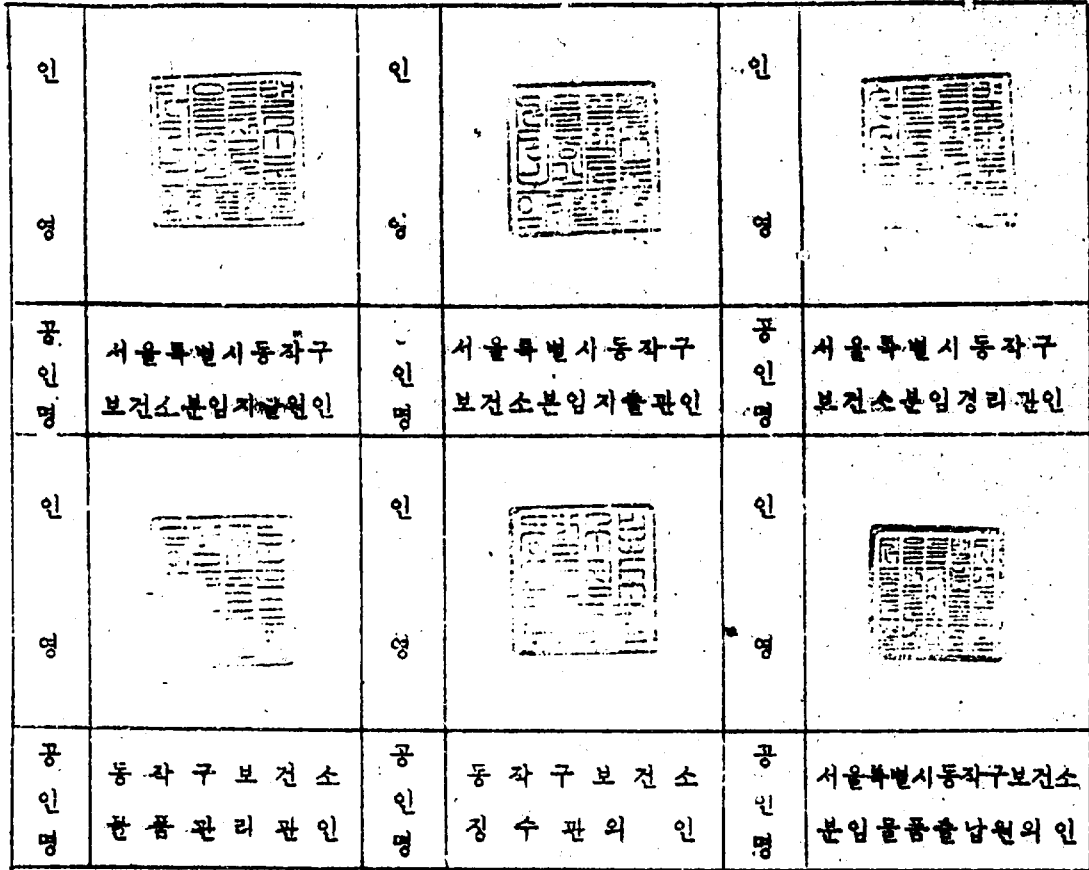 인 영
인 영
인 영
공인명
서울특별시동작구
보건소분임지출원인
공인명
서울특별시동작구
보건소분임지출관인
공인명
서울특별시동작구
보건소분임경리관인
인 영
인 영
인 영
공인명
동작구보건소
물품관리관인
공인명
동작구보건소
징수관의 인
공인명
서울특별시동작구보건소
분임물품출납원의인